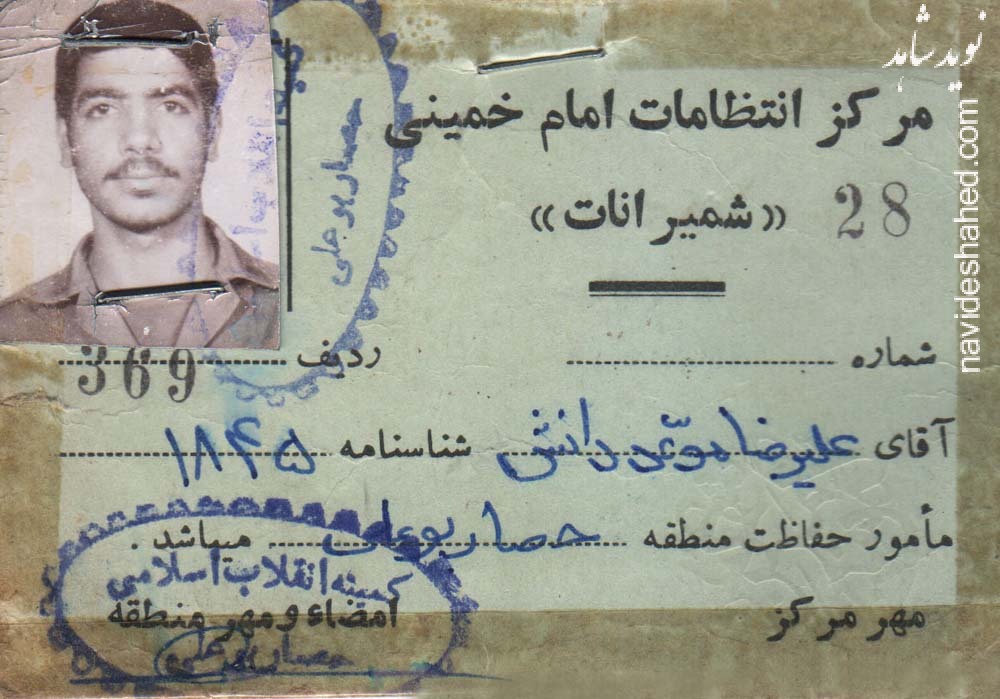 نوید شاهد
navideshahed.com
مرکز انتظامات امام خمینی
28 «شمیرانات»
حصار بوعلی
شماره ردیف 369
آقای علیرضا موحد دانش شناسنامه ۱۸۴۵
مأمور حفاظت منطقه حصار بوعلی میباشد.
کمیته انقلاب اسلامی
مهر مرکز امضاء و مهر منطقه
حصار بوعلی